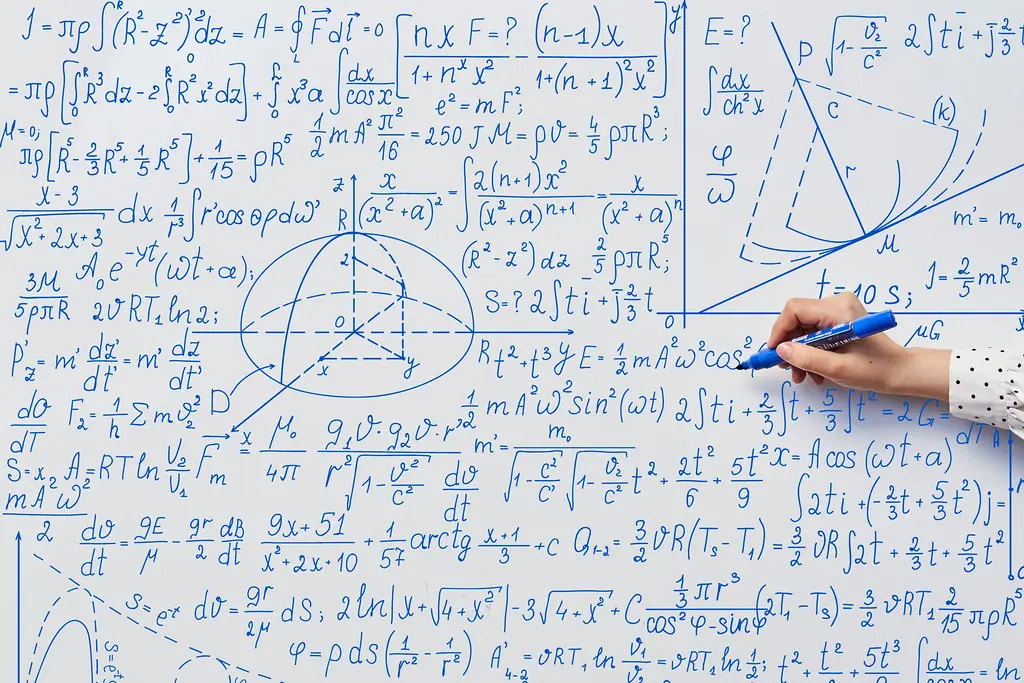 J = πρ∫(R²-z²)²dz = A = ∮F⃗dl⃗ = 0 [nx F=? / 1+nˣx² - (n-1)x / 1+(n+1)²x²] y E=? P √1-v₂/c² 2∫ti+j2/3t
= πρ[∫₀ᴿR³dz-2∫₀ᴿR²x²dz]+∫₀ᴸx³a∫dx/cosx e²=mF²; ∫dx/ch²x C (k)
M=0; πρ[R⁵-2/3R⁵+1/5R⁵]+1/15=ρR⁵ 1/2mA²π²/16=250J M=ρv=4/5ρπR³; φ/ω r
x-3/√x²+2x+3 dx 1/r³∫r'cosθρdω' z R x/(x²+a)²=∫2(n+1)x²/(x²+a)ⁿ⁺¹=x/(x²+a)ⁿ M m'=m₀
3M/5ρπR A₀e⁻ʸᵗ(ωt+a); 2 (R²-z²)dz 2/5ρπR⁵; J=2/5mR²
2vRT₁ln2; S=?2∫ti+j2/3t t=10 s;
0 x y 0 x
P'z=m'dz'/dt'=m'dz/dt' R t²+t³y E=1/2mA²ω²cos² μG
dσ/dT F₂=1/h∑mv₂² D 1/2mA²ω²sin²(ωt) 2∫ti+2/3∫t+5/3∫t²=2G=
S=x₂ A₂=RTlnV₂/V₁ F⃗m x μ₀/4π g₁v·g₂v·r'/r²√1-v²/c² dv/dt m'=m₀/√1-c²/c'√1-v₂/c² t²+2t²/6+5t²/9 x=Acos(ωt+a) dT
mAω²/2 ∫2ti+(-2/3t+5/3t²)j=
dv/dt=gE/μ-gr/2 dB/dt 9x+51/x²+2x+10+1/57arctg x+1/3+c Q₁₋₂=3/2vR(Ts-T₁)=3/2vR∫2t+2/3t+5/3t²
S=e⁻ˣ dv=gr/2μ dS; 2ln|x+√4+x²|-3√4+x²+C 1/3πr³/cos²φ-sinφ(2T₁-Ts)=3/2vRT₁2/15πρR⁵
φ=ρds(1/r²-1/r²) A'₄₋₂=vRT₁ln v₁/v₂=vRT₁ln1/2; t²+t²/2+5t³/6 ∫dx/cosx=ln